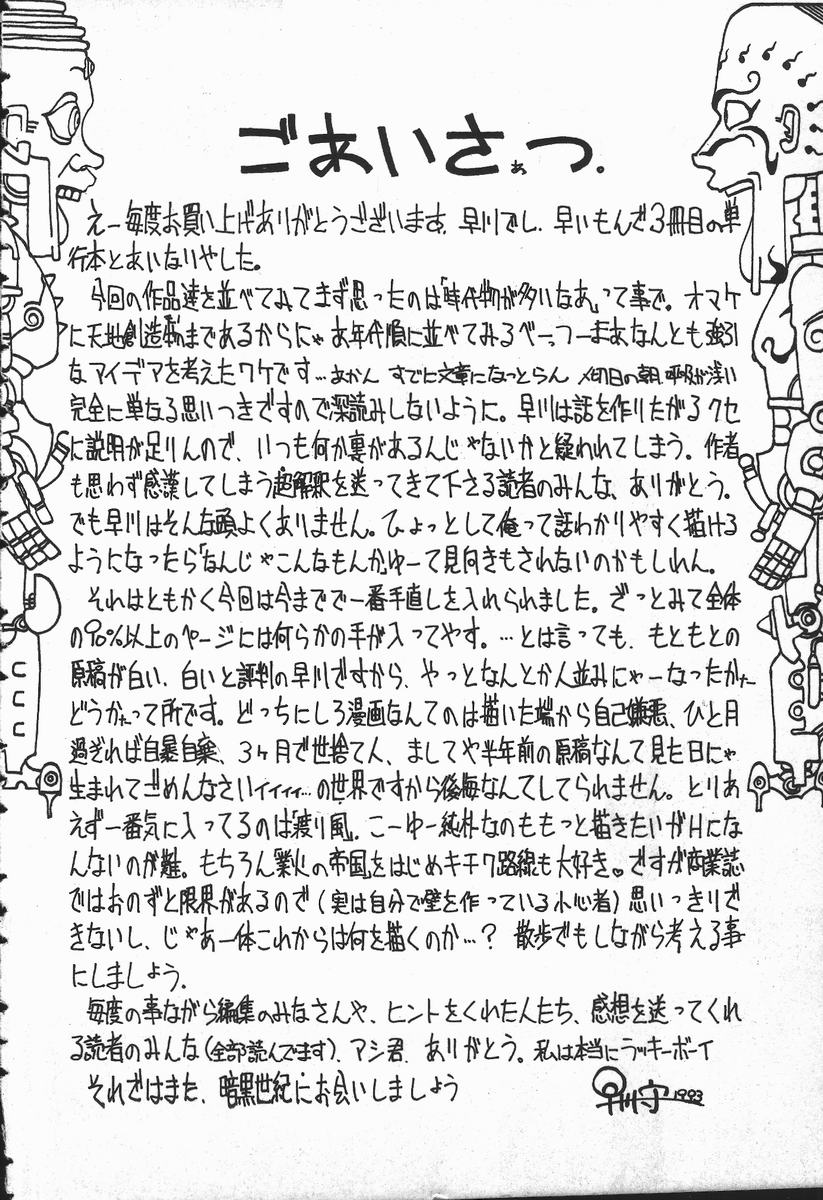 ごあいさぁつ.
えー毎度お買い上げありがとうございます。早川でし、早いもんで3冊目の単
行本とあいなりやした。
今回の作品達を並べてみてまず思ったのは「時代物が多いなあ」って事で。オマケ
に天地創造まであるからにゃお年代順に並べてみるべーっつーまあなんとも強引
なアイデアを考えたワケです…あかん すでに文章になっとらん 〆切日の朝 呼吸が浅い
完全に単なる思いつきですので深読みしないように。早川は話を作りたがるクセ
に説明が足りんので、いつも何か裏があるんじゃないかと疑われてしまう。作者
も思わず感嘆してしまう超解釈を送ってきて下さる読者のみんな、ありがとう。
でも早川はそんな頭よくありません。ひょっとして俺って話わかりやすく描ける
ようになったら「なんじゃこんなもんか」ゆーて見向きもされないのかもしれん。
それはともかく今回は今までで一番手直しを入れられました。ざっとみて全体
の90%以上のページには何らかの手が入ってやす。…とは言っても、もともとの
原稿が白い、白いと評判の早川ですから、やっとなんとか人並みにゃーなったかなー
どうかなって所です。どっちにしろ漫画なんてのは描いた端から自己嫌悪、ひと月
過ぎれば自暴自棄、3ヶ月で世捨て人、ましてや半年前の原稿なんて見た日にゃ
生まれてごめんなさいィィィィ…の世界ですから後悔なんてしてられません。とりあ
えず一番気に入ってるのは「渡り風」。こーゆー純朴なのももっと描きたいがHにな
んないのが難。もちろん「業火の帝国」をはじめキチク路線も大好き♥ですが商業誌
ではおのずと限界があるので(実は自分で壁を作っている小心者)思いっきりで
きないし、じゃあ一体これからは何を描くのか…? 散歩でもしながら考える事
にしましょう。
毎度の事ながら編集のみなさんや、ヒントをくれた人たち、感想を送ってくれ
る読者のみんな(全部読んでます)、アシ君、ありがとう。私は本当にラッキーボーイ
それではまた、暗黒世紀にお会いしましょう
早川守 1993